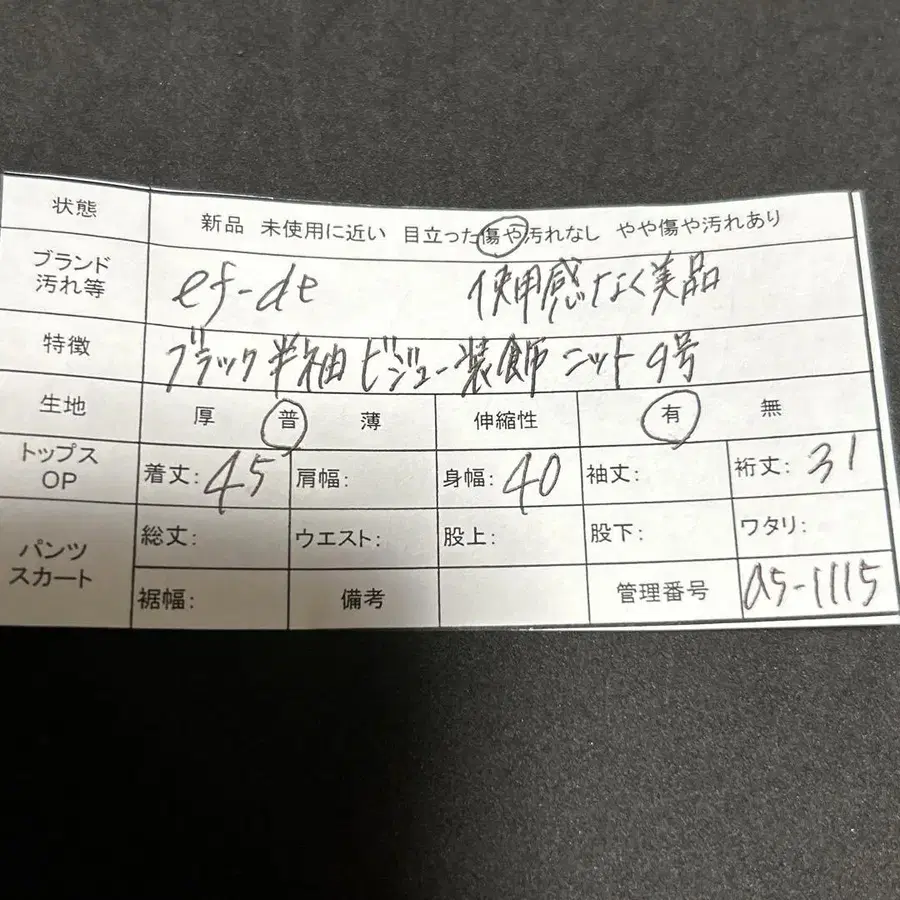 状態 新品 未使用に近い 目立った傷や汚れなし やや傷や汚れあり
ブランド
汚れ等 ef-de 使用感なく美品
特徴 ブラック半袖ビジュー装飾ニット9号
生地 厚 普 薄 伸縮性 有 無
トップス
OP 着丈: 45 肩幅: 身幅: 40 袖丈: 裄丈: 31
パンツ
スカート 総丈: ウエスト: 股上: 股下: ワタリ:
裾幅: 備考 管理番号 a5-1115